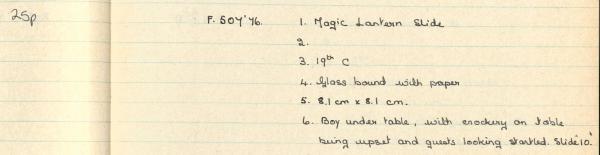 25p
F. 504'76. 1. Magic Lantern Slide
2.
3. 19th C
4. Glass bound with paper
5. 8.1 cm x 8.1 cm.
6. Boy under table, with crockery on table
being upset and guests looking startled. Slide '10'.